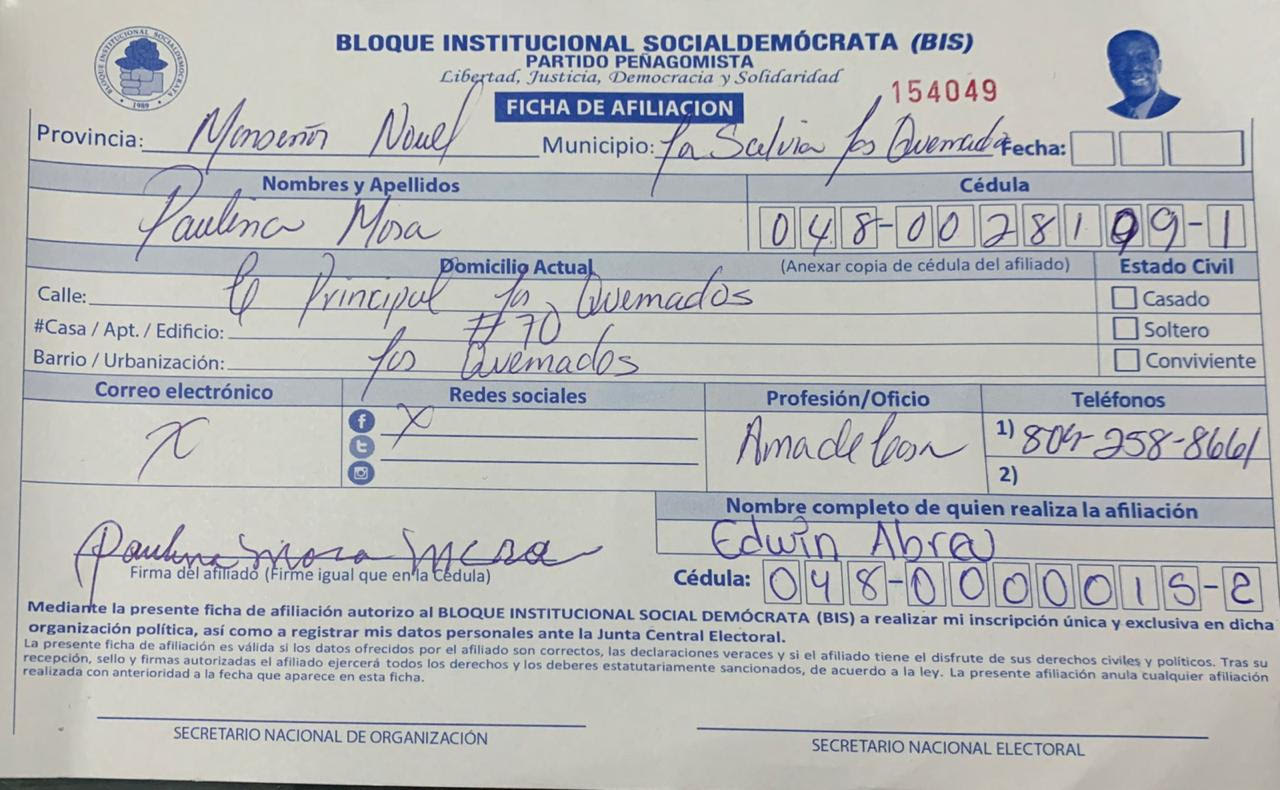 BLOQUE INSTITUCIONAL SOCIALDEMÓCRATA
1989
BLOQUE INSTITUCIONAL SOCIALDEMÓCRATA (BIS)
PARTIDO PEÑAGOMISTA
Libertad, Justicia, Democracia y Solidaridad
154049
FICHA DE AFILIACION
Provincia: Monseñor Nouel Municipio: La Salvia los Quemados Fecha:
Nombres y Apellidos Cédula
Paulina Mosa 048-0028109-1
Domicilio Actual (Anexar copia de cédula del afiliado) Estado Civil
Calle: C Principal los Quemados Casado
#Casa / Apt. / Edificio: #70 Soltero
Barrio / Urbanización: los Quemados Conviviente
Correo electrónico Redes sociales Profesión/Oficio Teléfonos
X X Ama de Casa 1) 809-258-8661
2)
Nombre completo de quien realiza la afiliación
Edwin Abreu
Paulina Mosa
Firma del afiliado (Firme igual que en la Cédula) Cédula: 048-0000015-2
Mediante la presente ficha de afiliación autorizo al BLOQUE INSTITUCIONAL SOCIAL DEMÓCRATA (BIS) a realizar mi inscripción única y exclusiva en dicha
organización política, así como a registrar mis datos personales ante la Junta Central Electoral.
La presente ficha de afiliación es válida si los datos ofrecidos por el afiliado son correctos, las declaraciones veraces y si el afiliado tiene el disfrute de sus derechos civiles y políticos. Tras su
recepción, sello y firmas autorizadas el afiliado ejercerá todos los derechos y los deberes estatutariamente sancionados, de acuerdo a la ley. La presente afiliación anula cualquier afiliación
realizada con anterioridad a la fecha que aparece en esta ficha.
SECRETARIO NACIONAL DE ORGANIZACIÓN SECRETARIO NACIONAL ELECTORAL